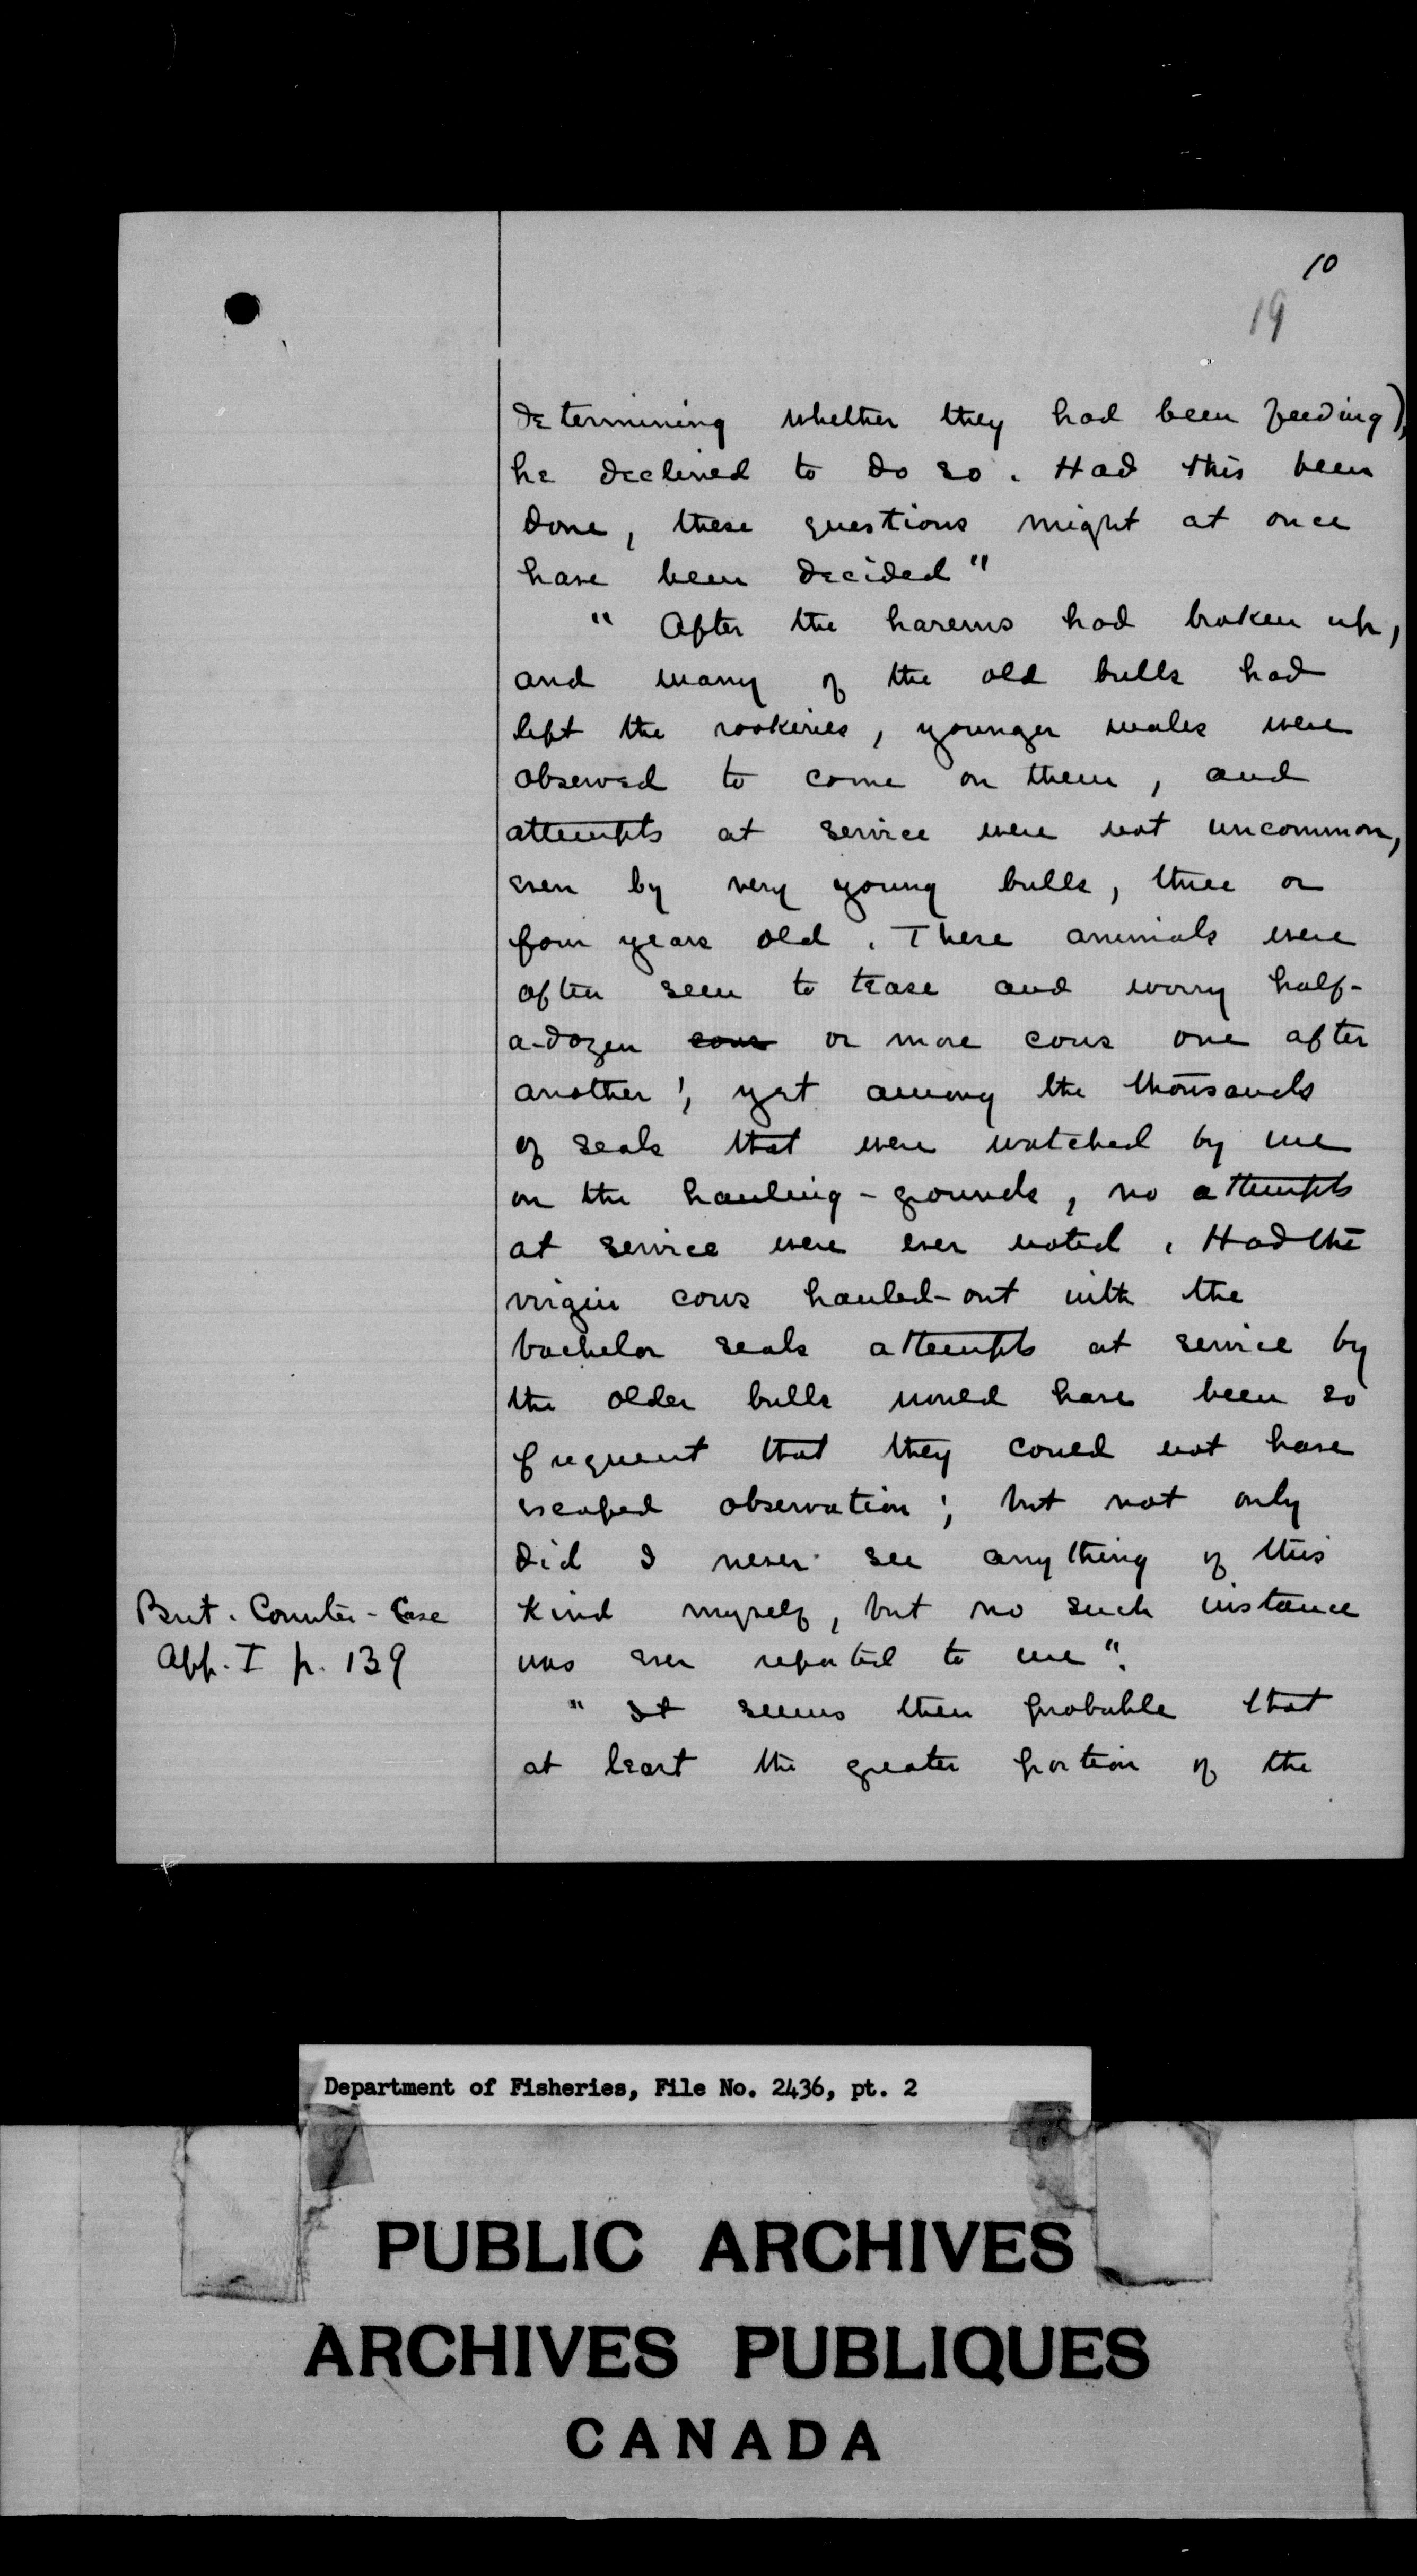 10
19
determining whether they had been feeding),
he declined to do so. Had this been
done, these questions might at once
have been decided"
" After the harems had broken up,
and many of the old bulls had
left the rookeries, younger males were
observed to come on them, and
attempts at service were not uncommon,
even by very young bulls, three or
four years old. These animals were
often seen to tease and worry half-
a-dozen cows or more cows one after
another; yet among the thousands
of seals that were watched by me
on the hauling-grounds, no attempts
at service were ever noted. Had the
virgin cows hauled-out with the
bachelor seals attempts at service by
the older bulls would have been so
frequent that they could not have
escaped observation; but not only
did I never see anything of this
Brit. Counter-Case
kind myself, but no such instance
App. I p. 139
was ever reported to me".
" It seems then probable that
at least the greater portion of the
Department of Fisheries, File No. 2436, pt. 2
PUBLIC ARCHIVES
ARCHIVES PUBLIQUES
CANADA